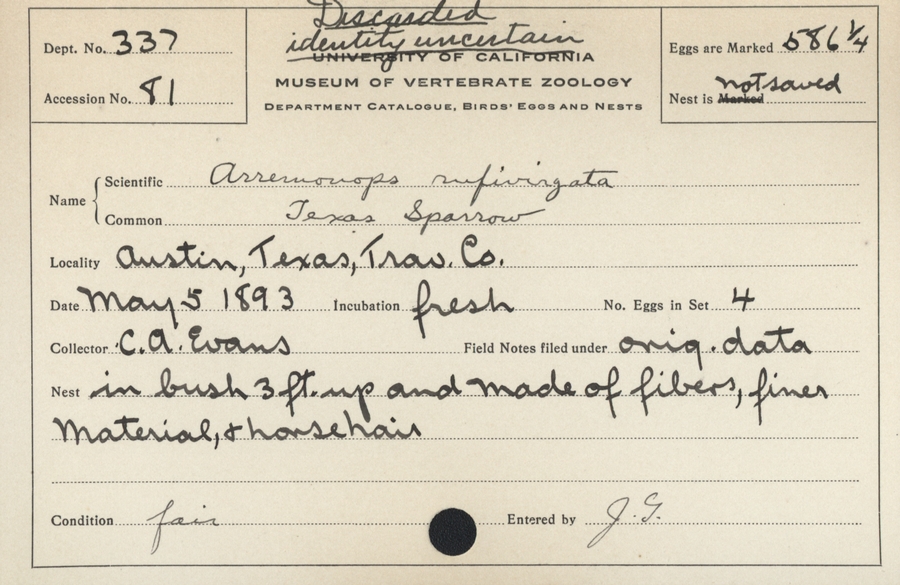 Discarded
identity uncertain
Dept. No. 337
UNIVERSITY OF CALIFORNIA
Eggs are Marked 586 1/4
MUSEUM OF VERTEBRATE ZOOLOGY
not saved
Accession No. 81
DEPARTMENT CATALOGUE, BIRDS' EGGS AND NESTS
Nest is Marked
Name { Scientific Arremonops rufivirgata
Common Texas Sparrow
Locality Austin, Texas, Trav. Co.
Date May 5 1893 Incubation fresh No. Eggs in Set 4
Collector C.A. Evans Field Notes filed under orig. data
Nest in bush 3 ft. up and made of fibers, finer
Material, & horsehair
Condition fair Entered by J.G.